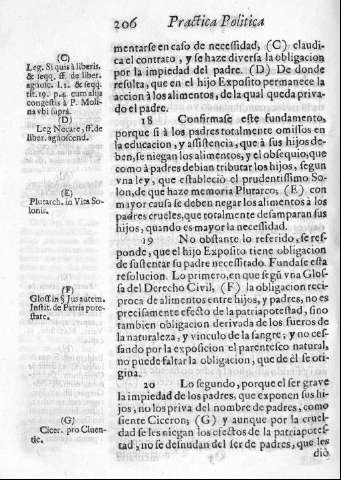 206 Practica Politica
(C)
Leg. Si quis à liberis,
& seqq. ff. de liber.
agnosc. l. 1. & seqq.
tit. 19. p. 4. cum alijs
congestis à P. Moli-
na vbi suprà.
(D)
Leg Necare, ff. de
liber. agnoscend.
(E)
Plutarch. in Vita So-
lonis.
(F)
Gloss. in § Jus autem.
Instit. de Patria pote-
state.
(G)
Cicer. pro Cluen-
tic.
mentarse en caso de necessidad, (C) claudi-
ca el contrato, y se haze diversa la obligacion
por la impiedad del padre. (D) De donde
resulta, que en el hijo Exposito permanece la
accion à los alimentos, de la qual queda priva-
do el padre.
18 Confirmase este fundamento,
porque si à los padres totalmente omissos en
la educacion, y assistencia, que à sus hijos de-
ben, se niegan los alimentos, y el obsequio, que
como à padres debian tributar los hijos, segun
vna ley, que estableciò el prudentissimo So-
lon, de que haze memoria Plutarco; (E) con
mayor causa se deben negar los alimentos à los
padres crueles, que totalmente desamparan sus
hijos, quando es mayor la necessidad.
19 No obstante lo referido, se res-
ponde, que el hijo Exposito tiene obligacion
de sustentar su padre necessitado. Fundase esta
resolucion. Lo primero, en que segũ vna Glos-
sa del Derecho Civil, (F) la obligacion reci-
proca de alimentos entre hijos, y padres, no es
precisamente efecto de la patriapotestad, sino
tambien obligacion derivada de los fueros de
la naturaleza, y vinculo de la sangre; y no ces-
sando por la exposicion el parentesco natural,
no puede faltar la obligacion, que de èl se ori-
gina.
20 Lo segundo, porque el ser grave
la impiedad de los padres, que exponen sus hi-
jos, no los priva del nombre de padres, como
siente Ciceron; (G) y aunque por la cruel-
dad se les niegan los efectos de la patriapotes-
tad, no se desnudan del ser de padres, que les
diò